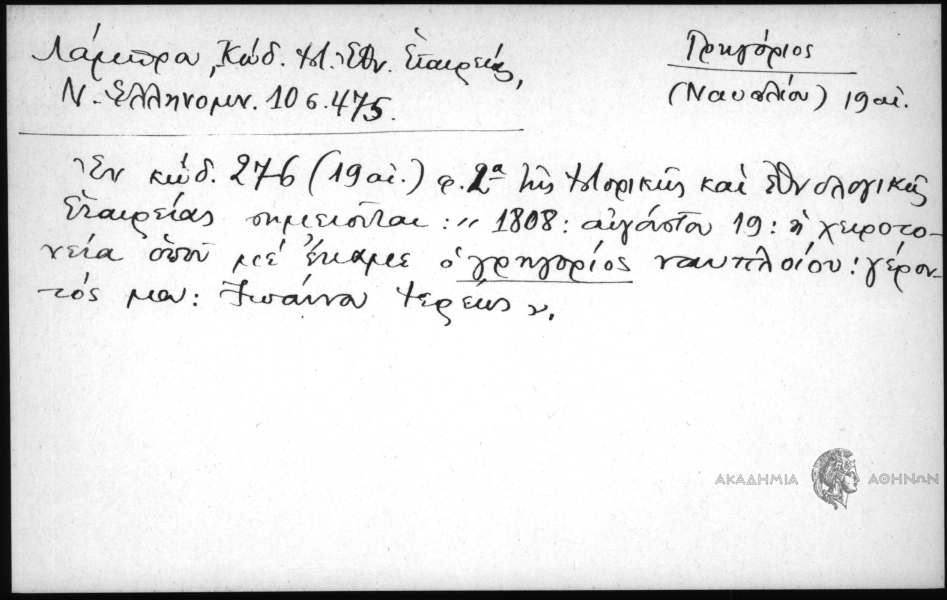 Λάμπρα, Κώδ. Ἱστ. Ἐθν. Ἑταιρείας,
Ν. Ἑλληνομν. 10 σ. 475.
Γρηγόριος
(Ναυπλίου) 19 αἰ.
Ἐν κώδ. 276 (19 αἰ.) φ. 2α τῆς Ἱστορικῆς καὶ Ἐθνολογικῆς
Ἑταιρείας σημειοῦται: „ 1808: αὐγούστου 19: ἡ χειροτο-
νεία ὁποῦ μὲ ἔκαμε ὁ γρηγορίος ναυπλοίου: γέρον-
τός μου: Ἰωάννου Ἱερέως ».
ΑΚΑΔΗΜΙΑ ΑΘΗΝΩΝ